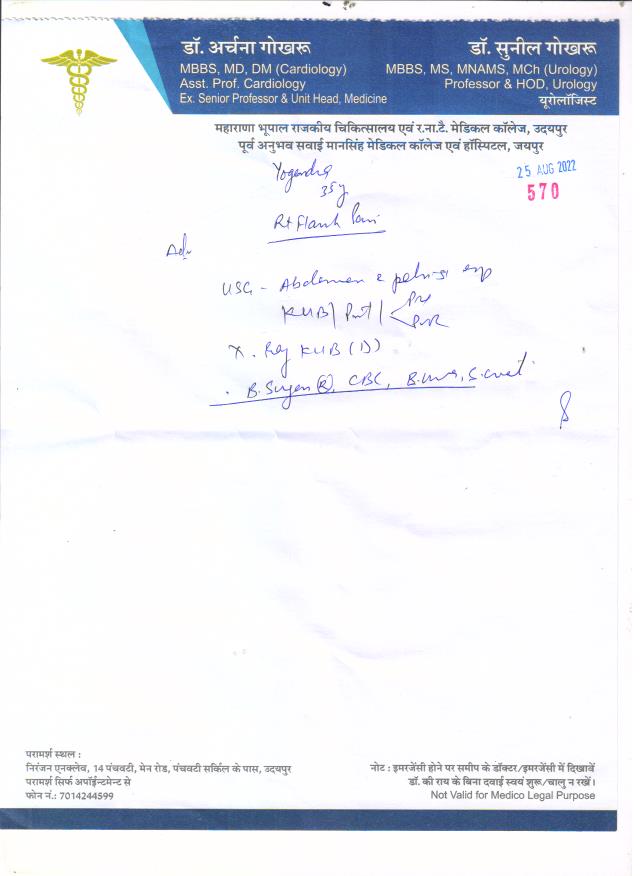 डॉ. अर्चना गोखरू
MBBS, MD, DM (Cardiology)
Asst. Prof. Cardiology
Ex. Senior Professor & Unit Head, Medicine
डॉ. सुनील गोखरू
MBBS, MS, MNAMS, MCh (Urology)
Professor & HOD, Urology
यूरोलॉजिस्ट
महाराणा भूपाल राजकीय चिकित्सालय एवं र.ना.टै. मेडिकल कॉलेज, उदयपुर
पूर्व अनुभव सवाई मानसिंह मेडिकल कॉलेज एवं हॉस्पिटल, जयपुर
25 AUG 2022
570
Yogendra
35y
Rt Flank Pain
Adv
USG - Abdomen
KUB / Prost / Pre
PVR
X. Ray KUB (D)
B. Sugar (R), CBC, B. urea, S. creat
परामर्श स्थल :
निरंजन एनक्लेव, 14 पंचवटी, मेन रोड, पंचवटी सर्किल के पास, उदयपुर
परामर्श सिर्फ अपॉईन्टमेन्ट से
फोन नं.: 7014244599
नोट : इमरजेंसी होने पर समीप के डॉक्टर/इमरजेंसी में दिखावें
डॉ. की राय के बिना दवाई स्वयं शुरू/चालु न रखें।
Not Valid for Medico Legal Purpose